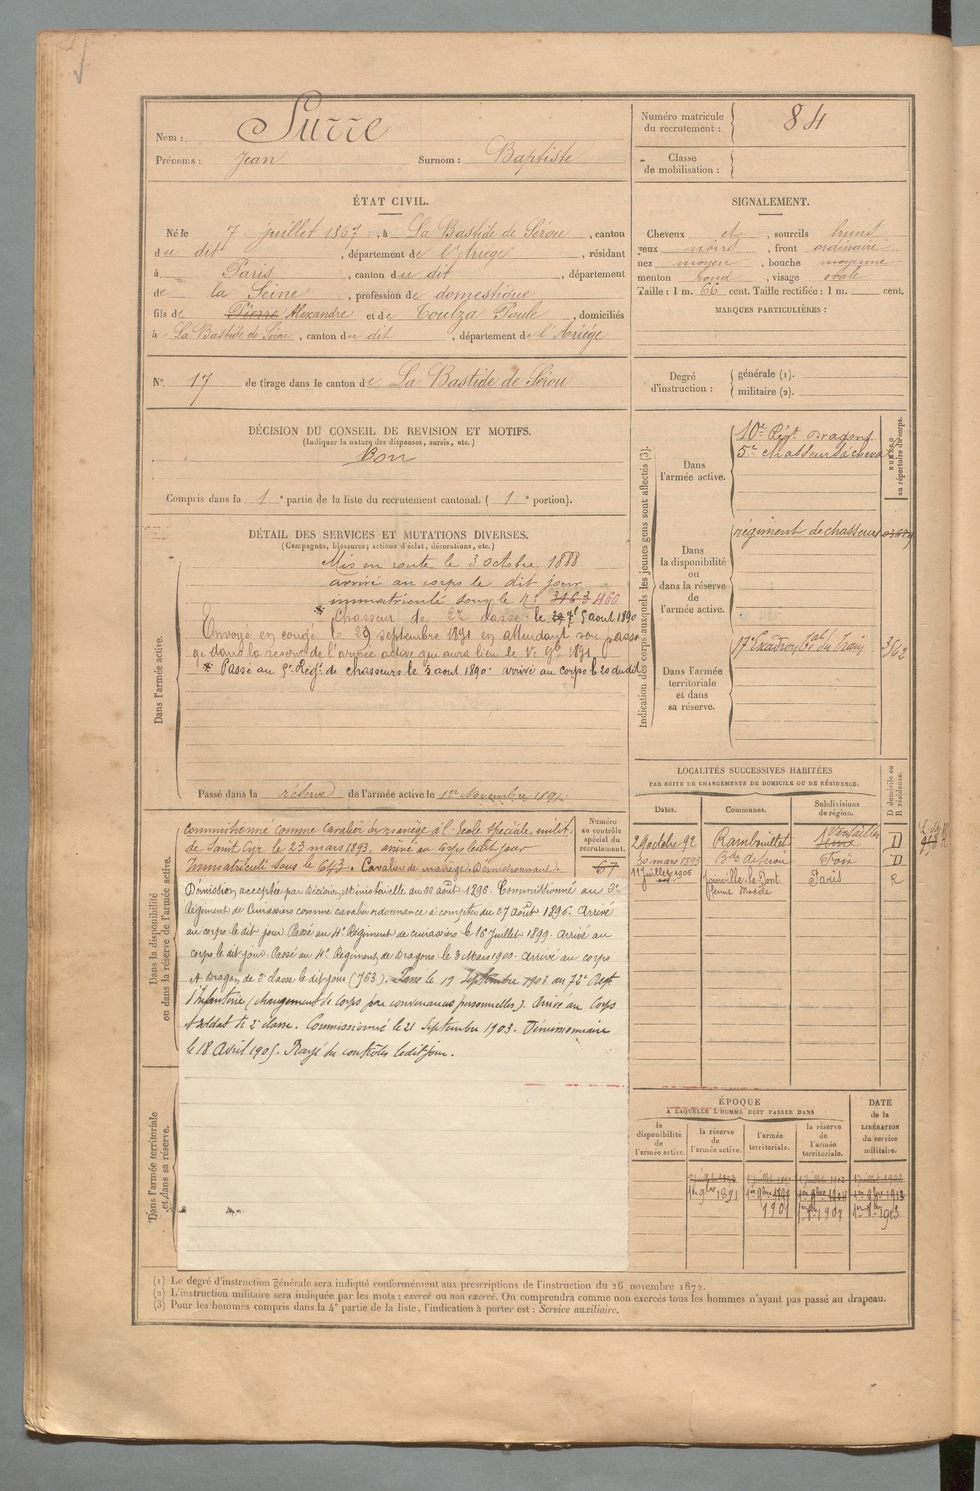 Nom : Surre
Prénoms : Jean Surnom : Baptiste
Numéro matricule du recrutement : 84
Classe de mobilisation :
ÉTAT CIVIL.
Né le 7 juillet 1867, à La Bastide de Sérou, canton
du dit, département de l'Ariège, résidant
à Paris, canton du dit, département
de la Seine, profession de domestique
fils de Pierre Alexandre et de Coulza Paule, domiciliés
à La Bastide de Sérou, canton du dit, département de l'Ariège
SIGNALEMENT.
Cheveux et, sourcils bruns
yeux noirs, front ordinaire
nez moyen, bouche moyenne
menton rond, visage ovale
Taille : 1 m. 66 cent. Taille rectifiée : 1 m. cent.
MARQUES PARTICULIÈRES :
N° 17 de tirage dans le canton de La Bastide de Sérou
Degré d'instruction : générale (1).
militaire (2).
DÉCISION DU CONSEIL DE REVISION ET MOTIFS.
(Indiquer la nature des dispenses, sursis, etc.)
Bon
Compris dans la 1e partie de la liste du recrutement cantonal. (1e portion).
DÉTAIL DES SERVICES ET MUTATIONS DIVERSES.
(Campagnes, blessures, actions d'éclat, décorations, etc.)
Dans l'armée active.
Mis en route le 3 octobre 1888
arrivé au corps le dit jour
immatriculé sous le N° 3463 460
* Chasseur de 2e classe le 5 août 1890
Envoyé en congé le 29 septembre 1891 en attendant son passa-
ge dans la réserve de l'armée active qui aura lieu le 1er 9bre 1891
* Passé au 5e Régt de chasseurs le 5 août 1890 arrivé au corps le dit
Passé dans la réserve de l'armée active le 1er Novembre 1891
Indication des corps auxquels les jeunes gens sont affectés (3).
NUMÉRO au répertoire du corps.
Dans l'armée active.
10e Régt Dragons
5e chasseurs à cheval
Dans la disponibilité ou dans la réserve de l'armée active.
régiment de chasseurs
Dans l'armée territoriale et dans sa réserve.
17e Escadron tal du Train 3/62
Dans la disponibilité ou dans la réserve de l'armée active.
Numéro au contrôle spécial du recrutement.
67
Commissionné comme cavalier de manège à l'Ecole Spéciale milit.
de Saint Cyr le 23 mars 1893, arrivé au corps ledit jour
Immatriculé sous le 643. Cavalier de manège. Démissionnant.
Démission acceptée par décision ministérielle du 22 août 1896. Commissionné au 3e
Régiment de Cuirassiers comme cavalier ordonnance à compter du 27 août 1896. Arrivé
au corps le dit jour. Passé au 4e Régiment de cuirassiers le 16 Juillet 1899. Arrivé au
corps le dit jour. Passé au 4e Régiment de Dragons le 3 Mars 1900. Arrivé au corps
et Dragon de 2e classe le dit jour (763). Passé le 19 Septembre 1903 au 72e Regt
d'Infanterie (changement de corps pour convenances personnelles). Arrivé au Corps
et soldat de 2e classe. Commissionné le 21 Septembre 1903. Démissionnaire
le 18 Avril 1905. Rayé des contrôles ledit jour.
LOCALITÉS SUCCESSIVES HABITÉES
PAR SUITE DE CHANGEMENTS DE DOMICILE OU DE RÉSIDENCE.
Dates. Communes. Subdivisions de région. D domicile ou R résidence.
29 octobre 92 Rambouillet Versailles D
30 mars 1893 Bde de Sérou Foix D
11 juillet 1906 Joinville-le-Pont Paris R
ferme Modèle
Dans l'armée territoriale et dans sa réserve.
ÉPOQUE
À LAQUELLE L'HOMME DOIT PASSER DANS
la disponibilité de l'armée active. la réserve de l'armée active. l'armée territoriale. la réserve de l'armée territoriale. DATE de la LIBÉRATION du service militaire.
1er 9bre 1891
1901 1907 1913
(1) Le degré d'instruction générale sera indiqué conformément aux prescriptions de l'instruction du 26 novembre 1872.
(2) L'instruction militaire sera indiquée par les mots : exercé ou non exercé. On comprendra comme non exercés tous les hommes n'ayant pas passé au drapeau.
(3) Pour les hommes compris dans la 4e partie de la liste, l'indication à porter est : Service auxiliaire.